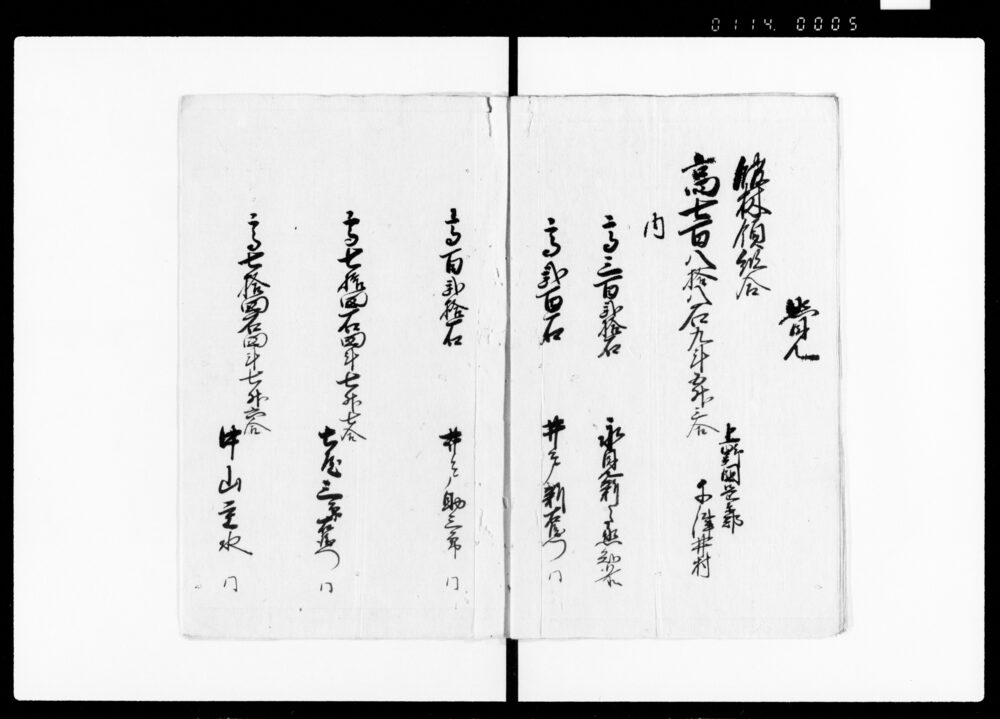 0114. 0005
覚
館林領組合
高七百八拾八石九斗五升二合
上野国邑楽郡
千津井村
内
高三百弐拾石
永見新之丞知行
高弐百石
井戸新右衛門
同
高百弐拾石
井戸助三郎
同
高七拾四石四斗七升七合
土屋三郎右衛門
同
高七拾四石四斗七升六合
中山主水
同